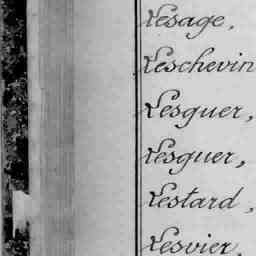 Lesage,
Leschevin
Lesguer,
Lesguer,
Lestard,
Lesvier,